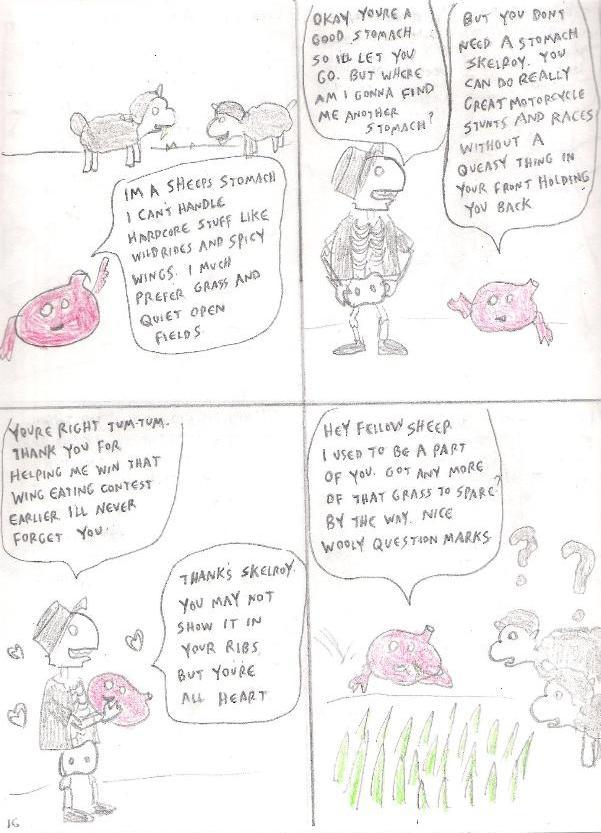 IM A SHEEPS STOMACH
I CAN'T HANDLE
HARDCORE STUFF LIKE
WILD RIDES AND SPICY
WINGS. I MUCH
PREFER GRASS AND
QUIET OPEN
FIELDS
OKAY YOU'RE A
GOOD STOMACH
SO I'LL LET YOU
GO. BUT WHERE
AM I GONNA FIND
ME ANOTHER
STOMACH?
BUT YOU DONT
NEED A STOMACH
SKELROY. YOU
CAN DO REALLY
GREAT MOTORCYCLE
STUNTS AND RACES
WITHOUT A
QUEASY THING IN
YOUR FRONT HOLDING
YOU BACK
YOU'RE RIGHT TUM-TUM.
THANK YOU FOR
HELPING ME WIN THAT
WING EATING CONTEST
EARLIER. I'LL NEVER
FORGET YOU.
THANK'S SKELROY.
YOU MAY NOT
SHOW IT IN
YOUR RIBS
BUT YOU'RE
ALL HEART
HEY FELLOW SHEEP
I USED TO BE A PART
OF YOU. GOT ANY MORE
OF THAT GRASS TO SPARE?
BY THE WAY. NICE
WOOLY QUESTION MARKS
? ?
16